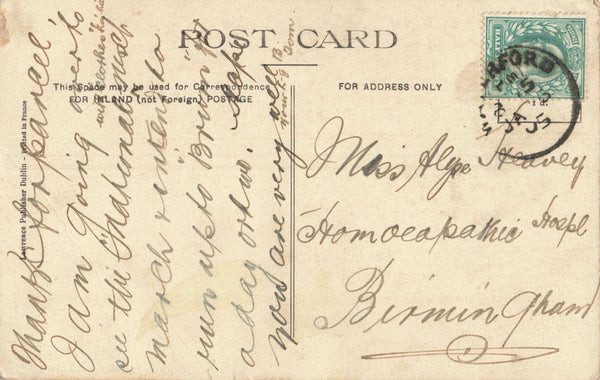 POST CARD
This Space may be used for Correspondence
FOR INLAND (not Foreign) POSTAGE
FOR ADDRESS ONLY
Lawrence Publisher Dublin - Printed in France
Thanks for parcel
I am going over to
see the "Nationals"
march & intend to
run up to Brum for
a day or two. Hope
you are very well
Tom
ERFORD
JA
05
HALF
Miss Heavey
Homoeopathic Hospl
Birmingham